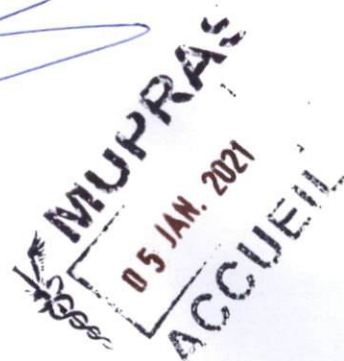 MUPRAS
05 JAN. 2021
ACCUEIL